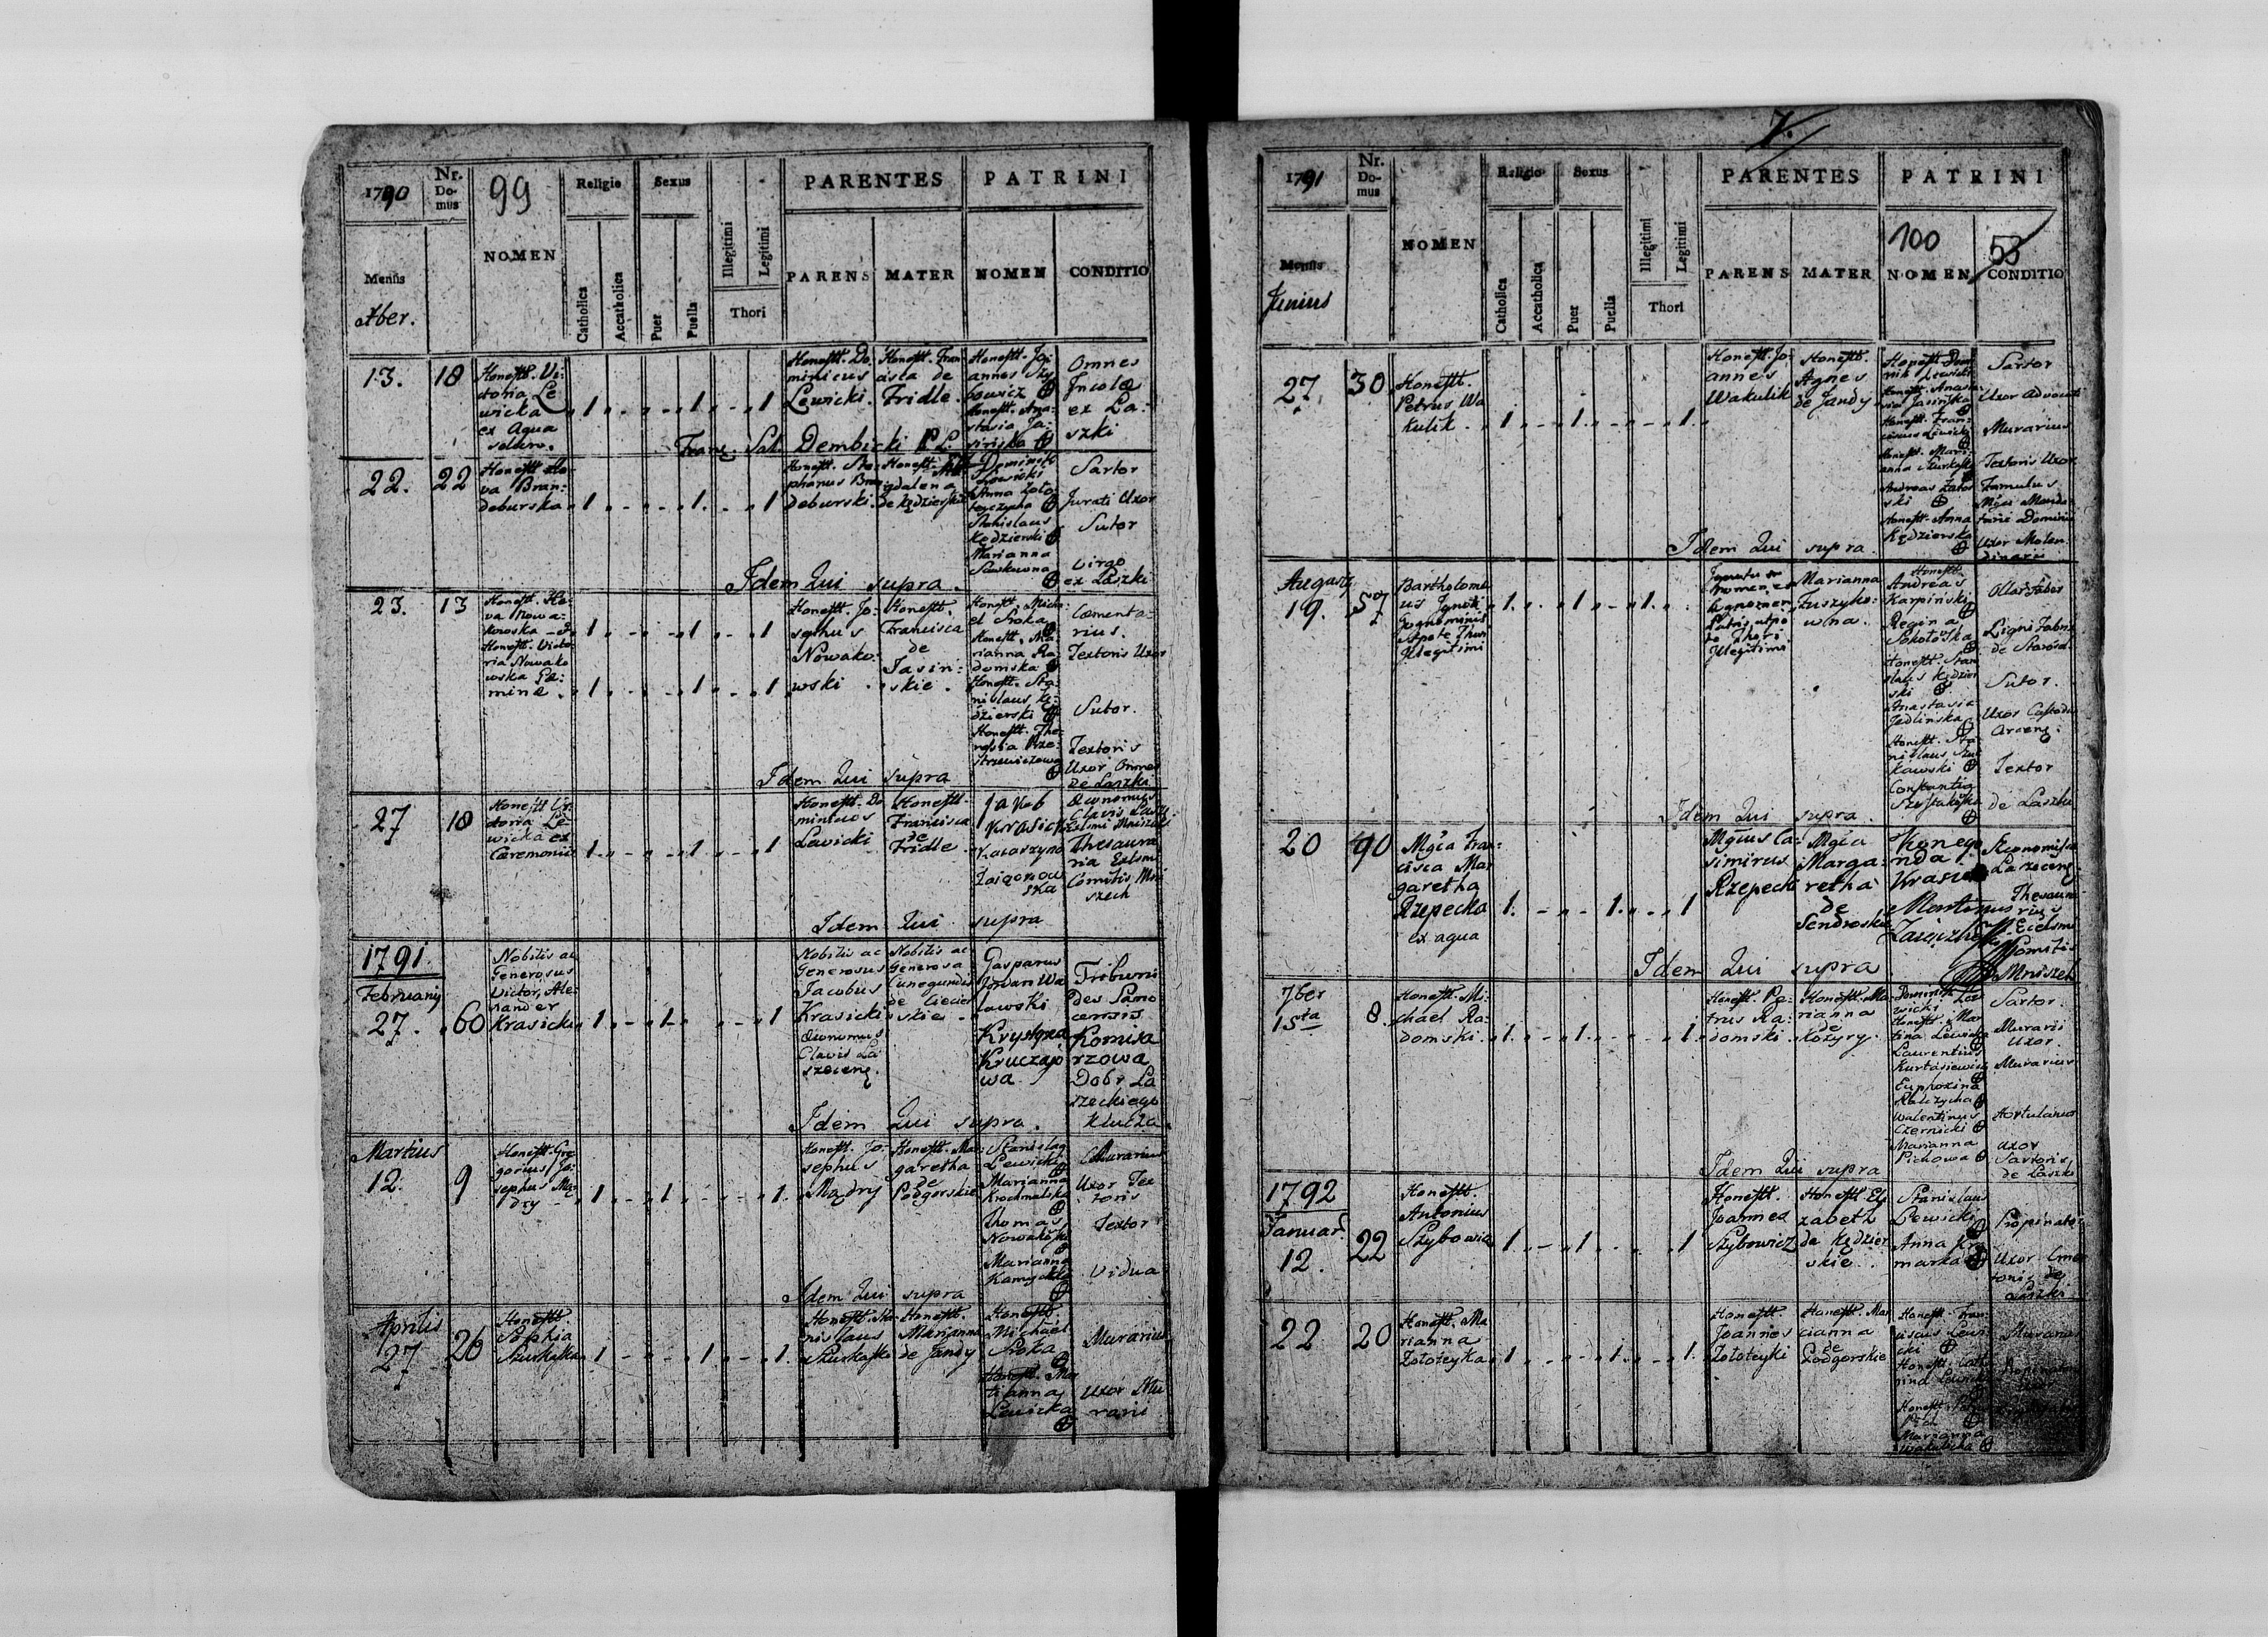 1790
Nr. Domus
99
NOMEN
Religio
Sexus
PARENTES
PATRINI
Mensis
Xber.
Catholica
Accatholica
Puer
Puella
Illegitimi
Legitimi
Thori
PARENS
MATER
NOMEN
CONDITIO
13.
18
Honestt. Vi:
ctoria Le
wicka
ex Aqua
1
1
1
Honestt. Do:
minicus
Lewicki.
Honestt. Fran
cisca de
Fridle.
Honestt. Jo:
annes Szy
bowicz
Honestt. Ana:
stasia Ja:
sinska
Omnes
Incolae
ex La:
szki
Franc. Sal. Dembicki
22.
22
Honestt.
va Bran:
deburska
1
1
1
Honestt. Ste
phanus Bran
deburski
Honestt.
gdalena
de Kędzierskie
Dominik
Lewicki
Anna Zoło
teyczycha
Stanislaus
Kędzierski
Marianna
Sartor
Jurati Uxor
Sutor
Virgo
ex Laszki
Idem Qui supra.
23.
13
Honestt. He:
va Nowa:
kowska
Honestt. Victo:
ria Nowako
wska Ge:
minae.
1
1
1
1
1
1
Honestt. Jo:
sephus
Nowako:
wski
Honestt.
Francisca
de
Jasin:
skie.
Honestt. Micha:
el Sroka
Honestt. Ma:
rianna Ra:
domska
Honestt. Sta:
nislaus Kę:
dzierski
Honestt. The:
ressia
Caementa:
rius.
Textoris Uxor
Sutor.
Textoris
Uxor Omnes
de Laszki
Idem Qui supra
27
18
Honestt. Vi:
ctoria Le:
wicka ex
Caeremoniis
1
1
1
Honestt. Do
minicus
Lewicki
Honestt.
Francisca
de
Fridle
Jakob
Krasicki
Katarzyna
Zaiączkow
ska
Oeconomus
Clavis
Thesaura
ria
Comitis Mni
szech
Idem Qui supra
1791.
February
27.
60
Nobilis ac
Generosus
Victor, Ale:
xander
Krasicki
1
1
1
Nobilis ac
Generosus
Jacobus
Krasicki
Oeconomus
Clavis La
Nobilis ac
Generosa
Cunegundis
de
Gasparus
Jordan Wa
lawski
Krystyna
Kruczaio
wa
Tribuni
des
Komisa
rzowa
Dobr La
szeckiego
Klucza
Idem Qui supra.
Martius
12.
9
Honestt. Gre
gorius, Jo:
sephus Mą
dry
1
1
1
Honestt. Jo:
sephus
Mądry
Honestt. Mar
garetha
de
Podgorskie
Stanislaus
Lewicki
Marianna
Krochmalska
Thomas
Nowakowski
Marianna
Murarius
Uxor Tex
toris
Textor
Vidua
Idem Qui supra
Aprilis
27
26
Honestt.
Sophia
1
1
1
Honestt. Sta
nislaus
Honestt.
Marianna
de Jandy
Honestt.
Michael
Sroka
Honestt. Ma
rianna
Lewicka
Murarius
Uxor Mu
rarii
7.
1791
Nr. Domus
NOMEN
Religio
Sexus
PARENTES
PATRINI
Mensis
Junius
Catholica
Accatholica
Puer
Puella
Illegitimi
Legitimi
Thori
PARENS
MATER
100
NOMEN
53
CONDITIO
27.
30
Honestt.
Petrus Wa
kulik.
1
1
1
Honestt. Jo:
annes
Wakulik
Honestt.
Agnes
de Jandy
Honestt. Domi
nik Lewicki
Honestt. Anasta
sia Jasińska
Honestt. Fran:
ciscus Lewicki
Honestt. Mari:
anna
Andreas
Honestt. Anna
Kędzierska
Sartor
Uxor Advocati
Murarius
Textoris Uxor
Famulus
Uxor Molen
dinarii
Idem Qui supra.
August
19.
57
Bartholome
us Ignoti
Cognominis
utpote Thori
Illegitimi
1
1
1
Ignotum
nomen et
cognomen
Patris utpo
te Thori
Illegitimi
Marianna
Łuszyko:
wna.
Honestt.
Andreas
Karpinski
Regina
Sokołoska
Honestt. Stani
slaus Kędzier
ski
Anastasia
Jedlinska
Honestt. Sta
nislaus
Constantia
Ollar Faber
Ligni Fabri
de
Sutor.
Uxor Custodis
Textor
de Laszki
Idem Qui supra.
20
90
Mgca Fran:
cisca Mar
garetha
Rzepecka
ex aqua
1.
1.
1
Mgcus Ca:
simirus
Rzepecki
Mgca
Marga:
retha
de
Kunegu
nda
Martinus
Thesaura
rius
Comitis
Mniszech
Idem Qui supra
7ber
15ta
8.
Honestt. Mi:
chael Ra:
domski
1
1
1
Honestt. Pe:
trus Ra:
domski
Honestt. Ma
rianna
de
Kozyry.
Dominik Le
wicki
Honestt. Mar
tina Lewicka
Laurentius
Kurtasiewicz
Euphrozina
Walentinus
Czernicki
Marianna
Pichowa
Sartor.
Murarii
Uxor.
Murarius
Hortulanus
Uxor
Sartoris,
de Laszki
Idem Qui supra
1792
Januar.
12.
22
Honestt.
Antonius
Szybowicz
1
1
1
Honestt.
Joannes
Szybowicz
Honestt. Eli
zabeth
de Kędzier
skie.
Stanislaus
Lewicki
Anna
Propinator
Uxor
de
Laszki
22
20
Honestt. Ma
rianna
Zołoteyka
1
1
1.
Honestt.
Joannes
Zołoteyki
Honestt. Mar
rianna
de
Podgorskie
Honestt. Fran
ciscus Lewi
cki
Honestt.
rina Lewicka
Honestt.
Marianna
Murarius